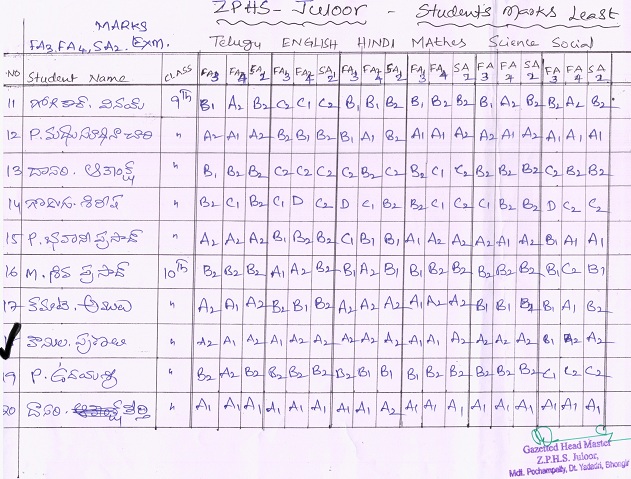 ZPHS- Juloor - Students Marks Least
MARKS
FA3, FA4, SA2. EXM. Telugu ENGLISH HINDI MAthes Science Social
NO Student Name CLASS FA3 FA4 SA2 FA3 FA4 SA2 FA3 FA4 SA2 FA3 FA4 SA2 FA3 FA4 SA2 FA3 FA4 SA2
11 వినయ్ 9th B1 A2 B2 C2 C1 C2 B1 B1 B2 B1 B2 B2 B1 A2 B2 B2 A2 B2
12 P. " A2 A1 A2 B2 B1 B2 B1 A1 B2 A1 A1 A2 A2 A1 A2 A1 A1 A1
13 దాసరి. " B1 B2 B2 C2 C2 C2 C2 B2 C2 B2 C1 C2 B2 B2 B2 C2 B2 B2
14 " B2 C1 B2 C1 D C2 D C1 B2 B2 C1 C2 C1 B2 B2 D C2 C2
15 P. భవాని ప్రసాద్ " A2 A2 A2 B1 B2 B2 C1 B1 B1 A1 A2 A2 A2 A2 A2 B1 A1 A1
16 M. శివ ప్రసాద్ 10th B2 B2 B2 A1 A2 B2 B1 A2 B1 B1 B2 B2 B2 B2 B2 B1 C2 B1
17 " A2 A1 A2 B2 B1 B2 A2 A2 A2 A1 A2 A2 B1 B1 B2 B1 A1 B2
" A2 A1 A2 B2 A2 A2 A2 A2 A2 A1 A1 A2 A2 A2 A2 B1 A2 A2
19 P. " B2 A2 B2 B2 B2 B2 B2 B1 B1 B1 B2 B2 B2 B2 B2 C1 C2 C2
20 దాసరి. కీర్తి " A1 A1 A1 A1 A1 A1 A1 A1 A2 A1 A1 A1 A1 A1 A1 A1 A1 A1
Gazetted Head Master
Z.P.H.S. Juloor,
Mdl. Pochampally, Dt. Yadadri, Bhongir